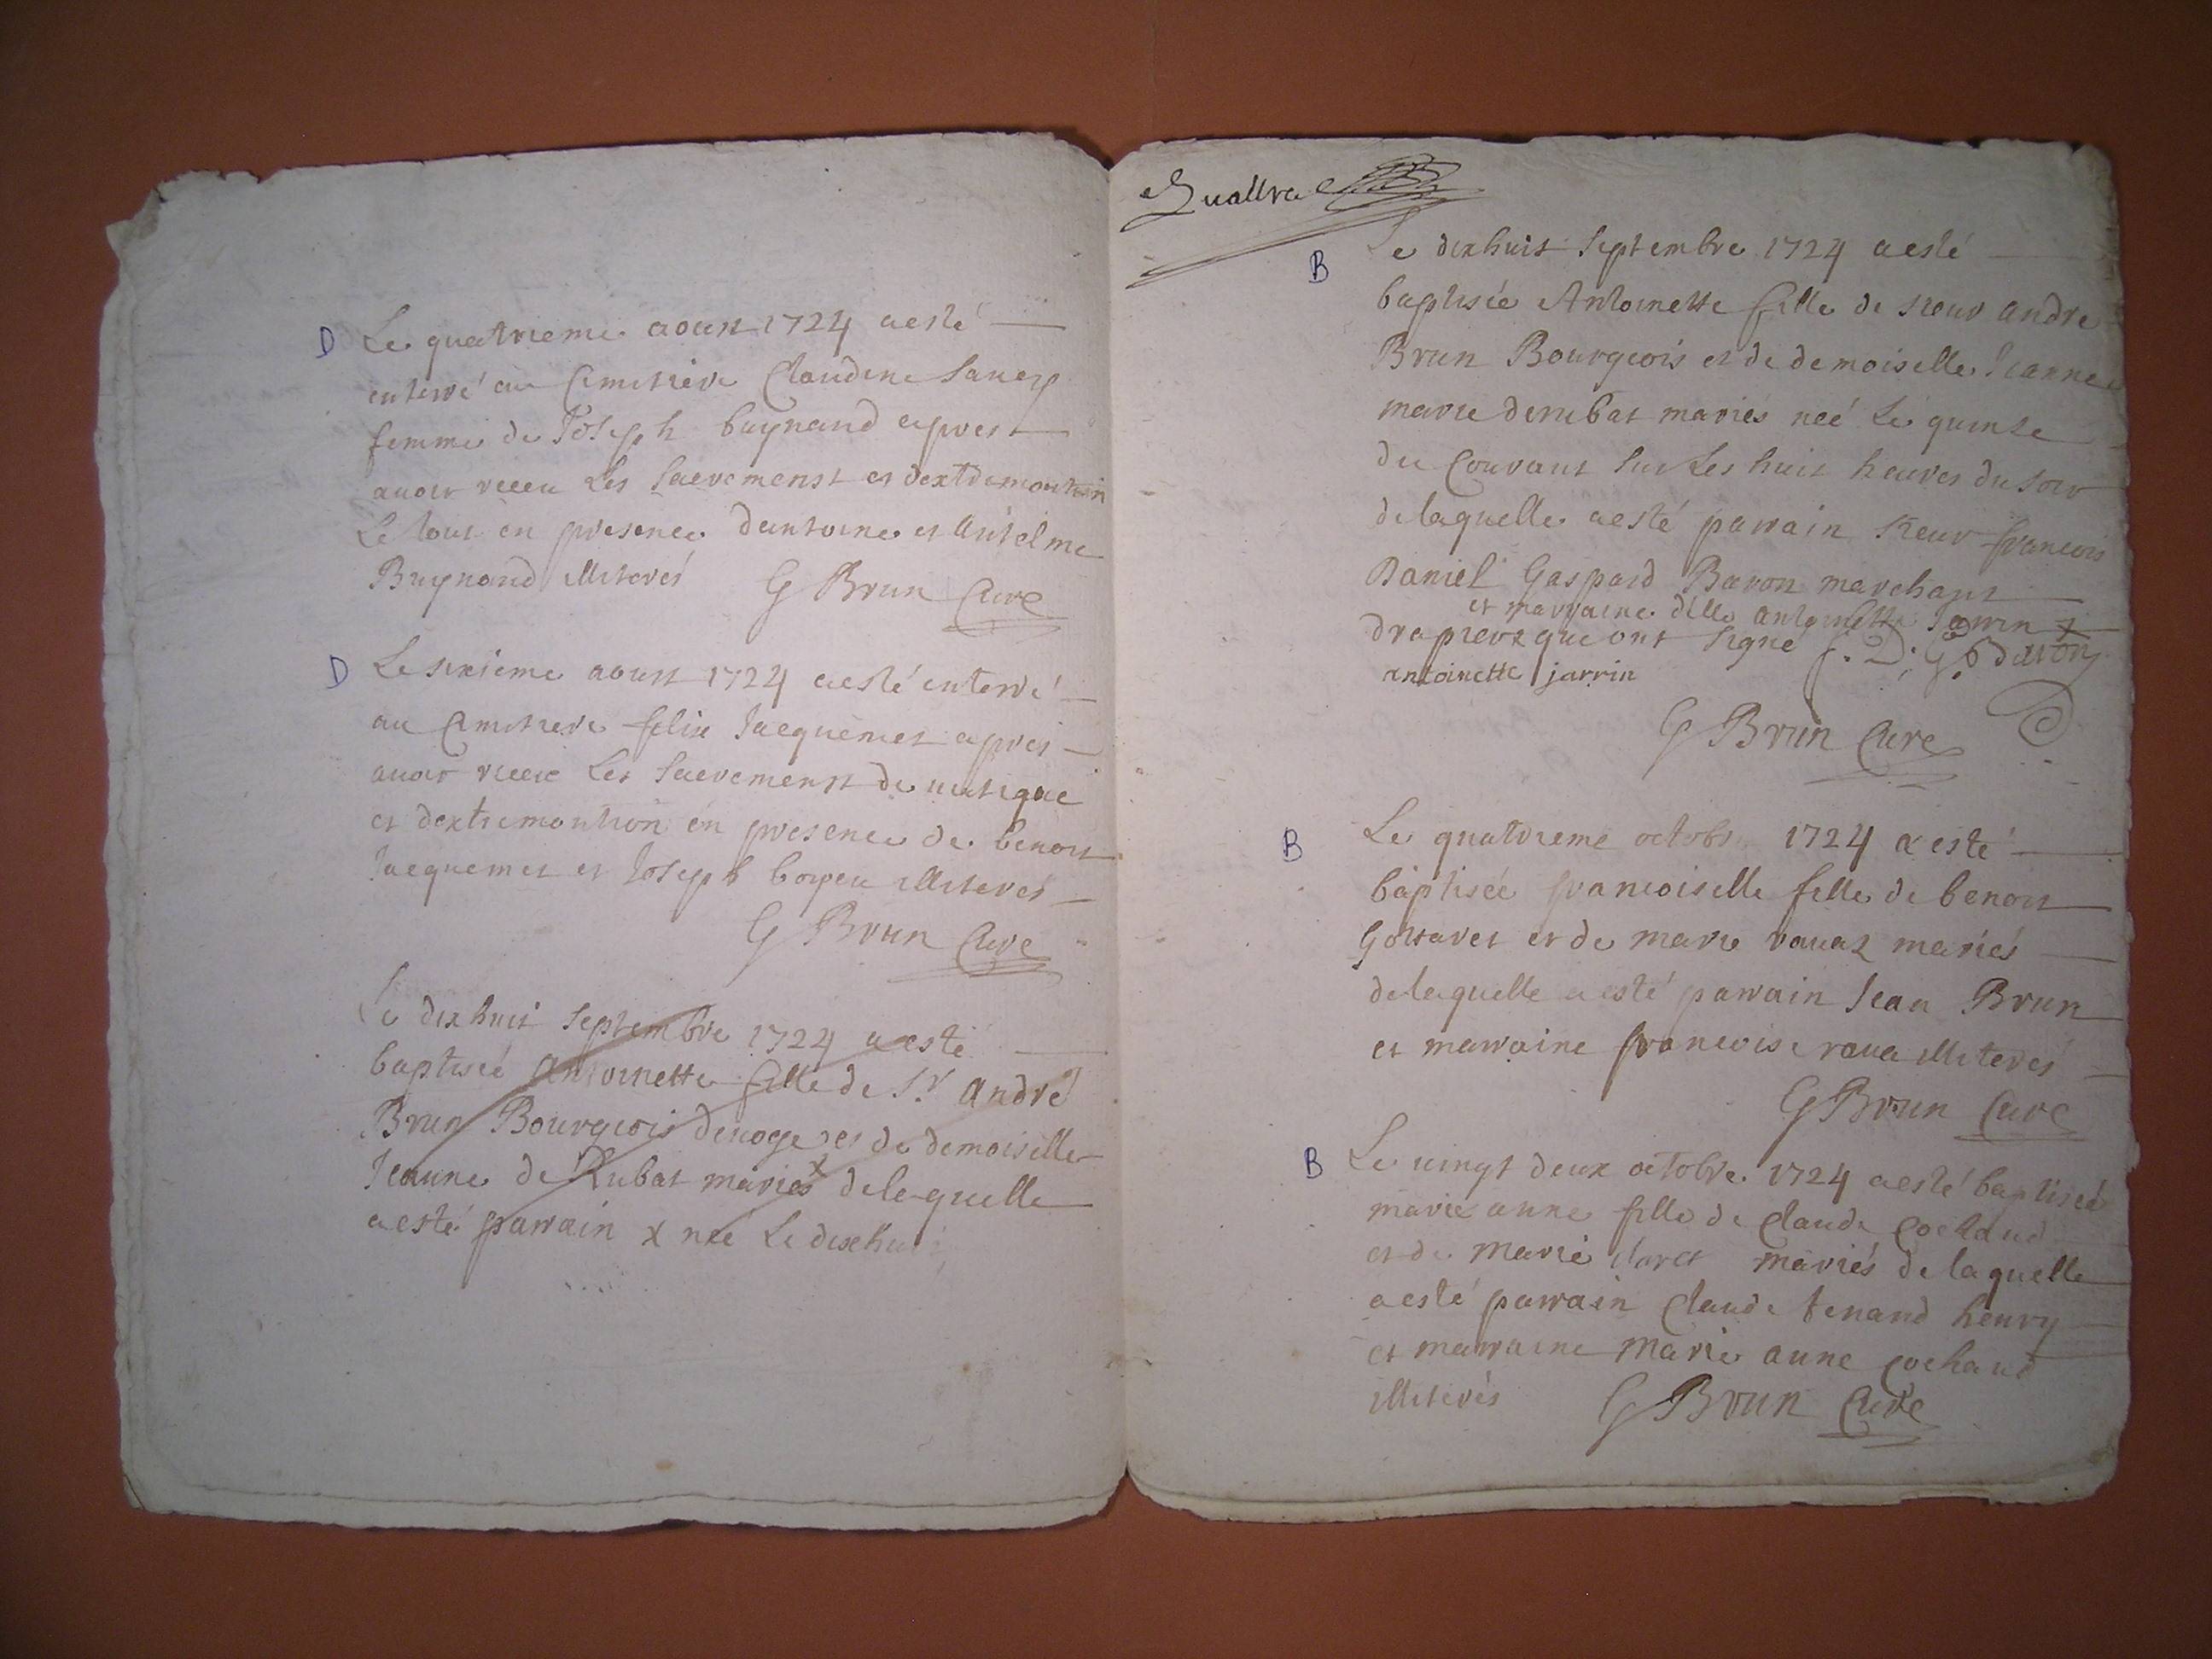 D
Le quatrieme aoust 1724 a esté
enterré au Cimetiere Claudine
femme de Joseph bugnand apres
avoir receu Les Sacremenst et dextremontion
Le tout en presence dantoine et Antelme
Bugnand illiterés G Brun Curé
D
Le sixieme aoust 1724 a esté enterré
au Cimetiere felix Jacquemet apres
avoir receu Les Sacremenst de viatique
et dextremontion en presence de benoit
Jacquemet et Joseph illiterés
G Brun Curé
Le dix huit Septembre 1724 a esté
baptisée Antoinette fille de Sr André
Brun Bourgeois et de demoiselle
Jeanne de Rubat mariés x delaquelle
a esté parrain x née Le dixhuit
Quattre
B
Le dixhuit Septembre 1724 a esté
baptisée Antoinette fille de sieur andre
Brun Bourgeois et de demoiselle Jeanne
marie derubat mariés neé Le quinse
du Courant Sur Les huit heures du soir
delaquelle a esté parrain sieur francois
Daniel Gaspard Baron marchant
et marraine dlle antoinette Jarrin x
drapier x que ont signé f. D. G. baron
antoinette jarrin
G Brun Curé
B
Le quatrieme octobre 1724 a esté
baptisée francoiselle fille de benoit
Gottaret et de marie ravaz mariés
delaquelle a esté parrain Jean Brun
et marraine francoise rava illiterés
G Brun Curé
B
Le vingt deux octobre 1724 a esté baptiseé
marie anne fille de Claude Cochaud
et de Marie mariés de laquelle
a esté parrain Claude tenand henry
et marraine Marie anne Cochaud
illiterés G Brun Curé